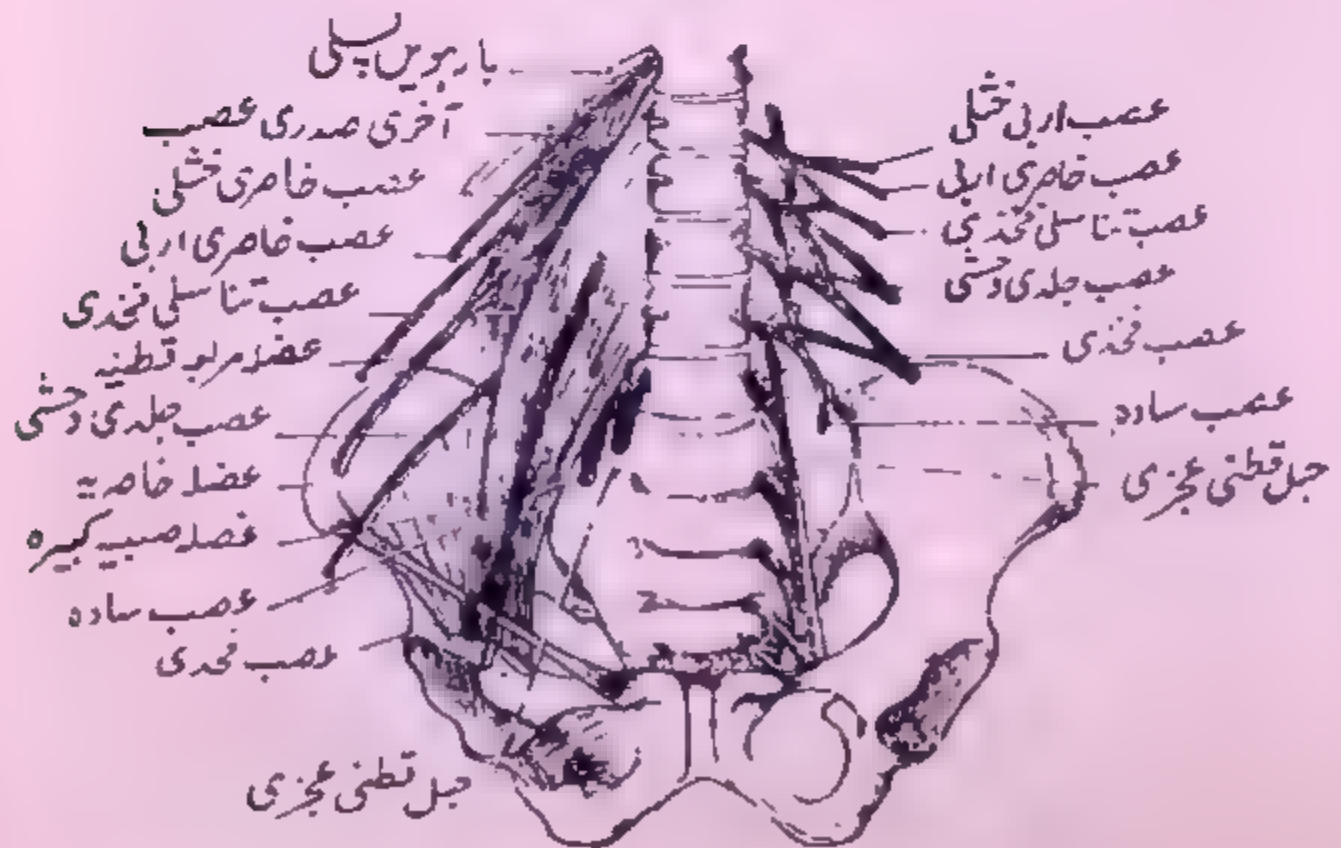 بارہویں پسلی
آخری صدری عصب
عصب خاصری خثلی
عصب خاصری اربی
عصب تناسلی فخذی
عضلہ مربعہ قطنیہ
عصب جلدی وحشی
عضلہ خاصریہ
عضلہ صلبیہ کبیرہ
عصب سادہ
عصب فخذی
حبل قطنی عجزی
عصب اربی خثلی
عصب خاصری اربی
عصب تناسلی فخذی
عصب جلدی وحشی
عصب فخذی
عصب سادہ
حبل قطنی عجزی